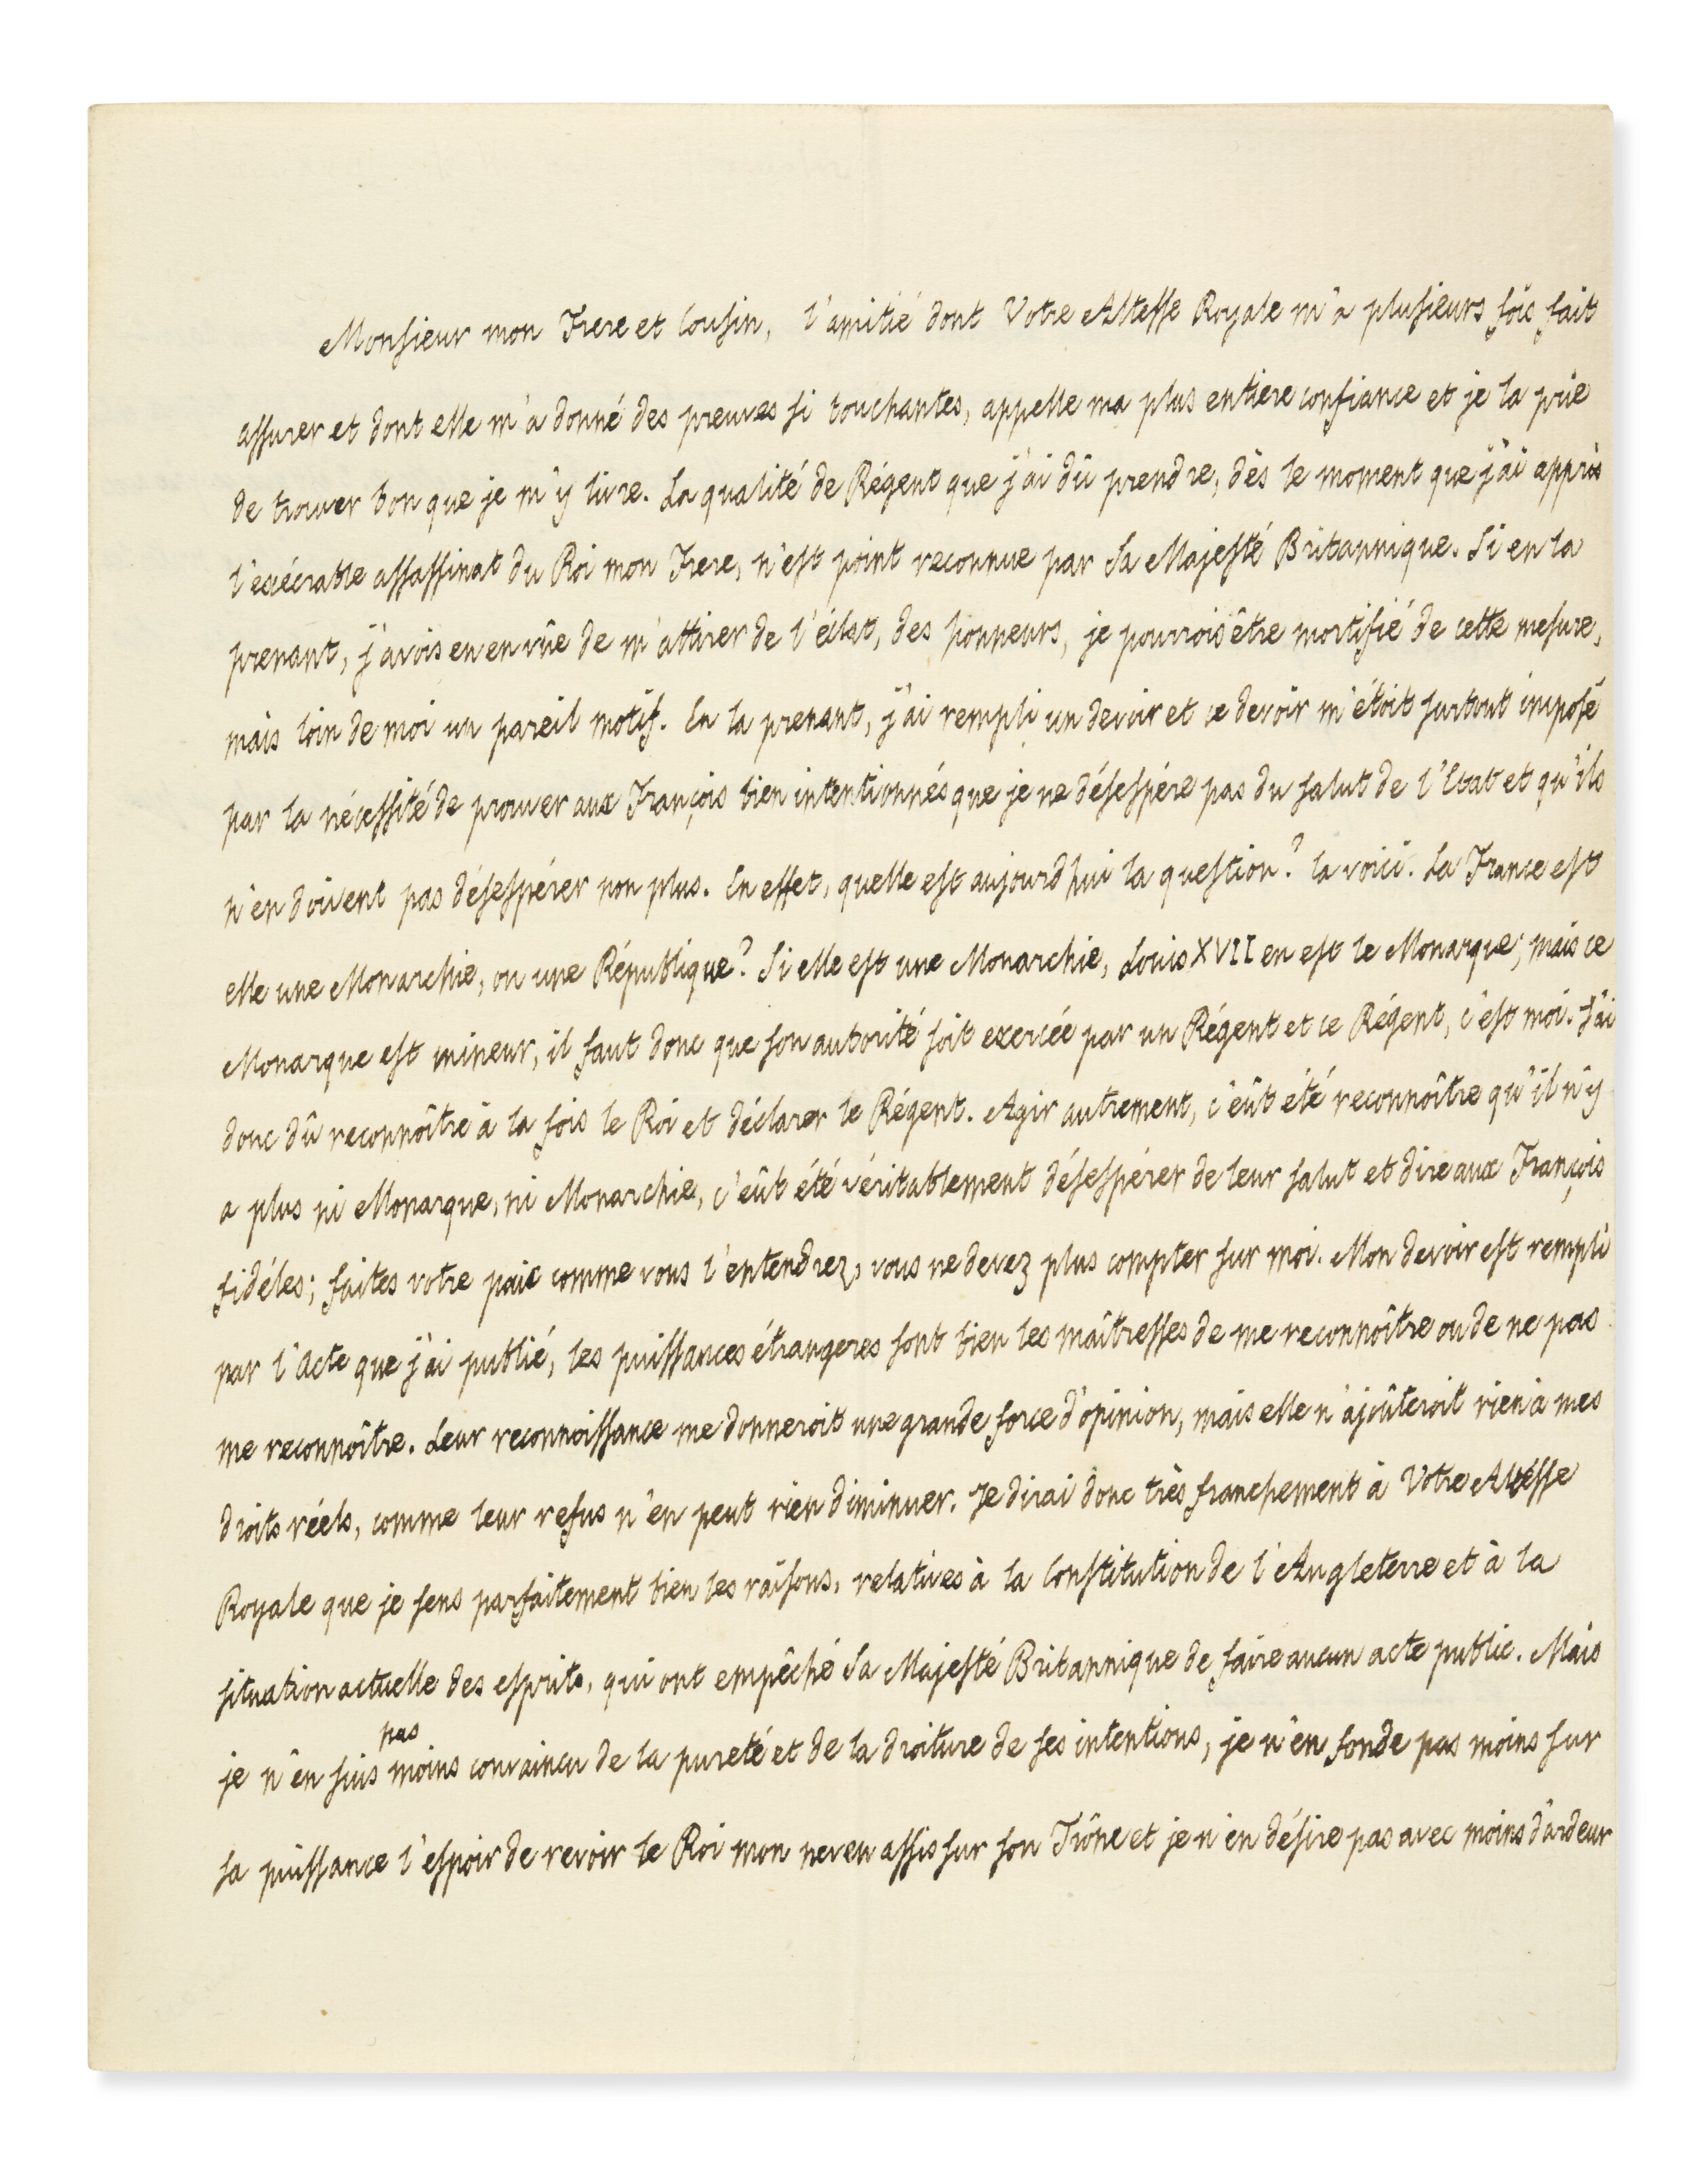 Monsieur mon Frere et Cousin, l'amitié dont Votre Altesse Royale m'a plusieurs fois fait
assurer et dont elle m'a donné des preuves si touchantes, appelle ma plus entiere confiance et je la prie
de trouver bon que je m'y livre. La qualité de Régent que j'ai dû prendre, dès le moment que j'ai appris
l'exécrable assassinat du Roi mon Frere, n'est point reconnue par Sa Majesté Britannique. Si en la
prenant, j'avois eu en vüe de m'attirer de l'éclat, des honneurs, je pourrois être mortifié de cette mesure,
mais loin de moi un pareil motif. En la prenant, j'ai rempli un devoir et ce devoir m'étoit surtout imposé
par la nécessité de prouver aux François bien intentionnés que je ne désespére pas du salut de l'Etat et qu'ils
n'en doivent pas désespérer non plus. En effet, quelle est aujourd'hui la question? la voici. La France est
elle une Monarchie, ou une République? Si elle est une Monarchie, Louis XVII en est le Monarque; mais ce
Monarque est mineur, il faut donc que son autorité soit exercée par un Régent et ce Régent, c'est moi. J'ai
donc dû reconnoître à la fois le Roi et déclarer le Régent. Agir autrement, c'eût été reconnoître qu'il n'y
a plus ni Monarque, ni Monarchie, c'eût été véritablement désespérer de leur salut et dire aux François
fidéles; faites votre paix comme vous l'entendrez, vous ne devez plus compter sur moi. Mon devoir est rempli
par l'Acte que j'ai publié, les puissances étrangeres sont bien les maîtresses de me reconnoître ou de ne pas
me reconnoître. Leur reconnoissance me donneroit une grande force d'opinion, mais elle n'ajoûteroit rien à mes
droits réels, comme leur refus n'en peut rien diminuer. Je dirai donc très franchement à Votre Altesse
Royale que je sens parfaitement bien les raisons, relatives à la Constitution de l'Angleterre et à la
situation actuelle des esprits, qui ont empêché Sa Majesté Britannique de faire aucun acte public. Mais
je n'en suis pas moins convaincu de la pureté et de la droiture de ses intentions, je n'en fonde pas moins sur
sa puissance l'espoir de revoir le Roi mon neveu assis sur son Trône et je n'en désire pas avec moins d'ardeur